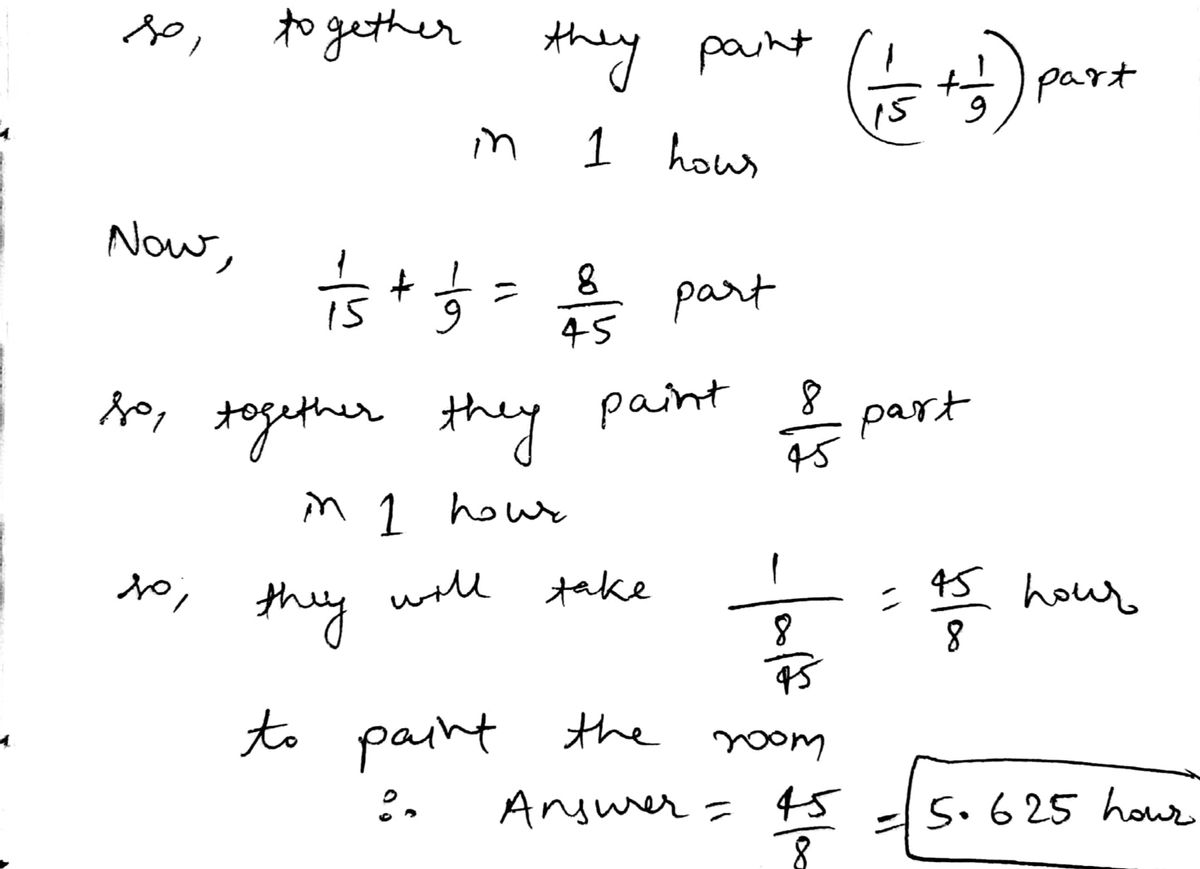 so, together they paint (1/15 + 1/9) part
in 1 hour
Now,
1/15 + 1/9 = 8/45 part
so, together they paint 8/45 part
in 1 hour
so, they will take 1/(8/45) = 45/8 hour
to paint the room
∴ Answer = 45/8 = 5.625 hour